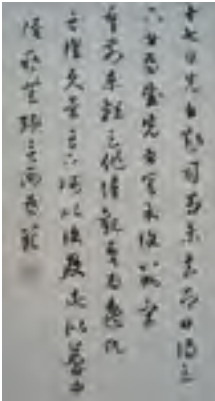 十七日先書郗司馬未去即日得足
下書為慰先書以具示復數字
吾前東粗足作佳觀吾為逸民
之懷久矣足下何以復及此似夢中
語耶無緣言面為歎